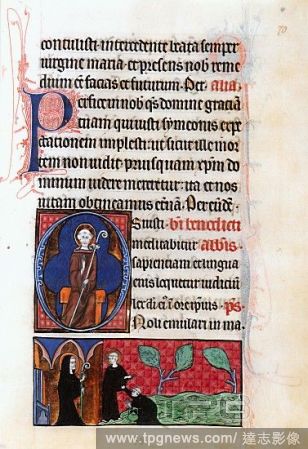 70
contulisti intercedente beata semper
uirgine maria. et presens nob reme
dium et facias et futurum. Per. alia.
Perfice in nob qs domine graciā
tuam qui iusti symeonis exp
ctationem implesti. ut sicut ille mor
tem non uidit priusquam xpm do
minum uidere mereretur. ita et nos
uitam obtineamus et̄nā. Per eūdē.
Os iusti. bī benedicti
meditabitur abbis.
sapienciam et lingua
eius loquetur iudiciū
ps
Noli emulari in ma
www.tpgnews.com/ 達志影像